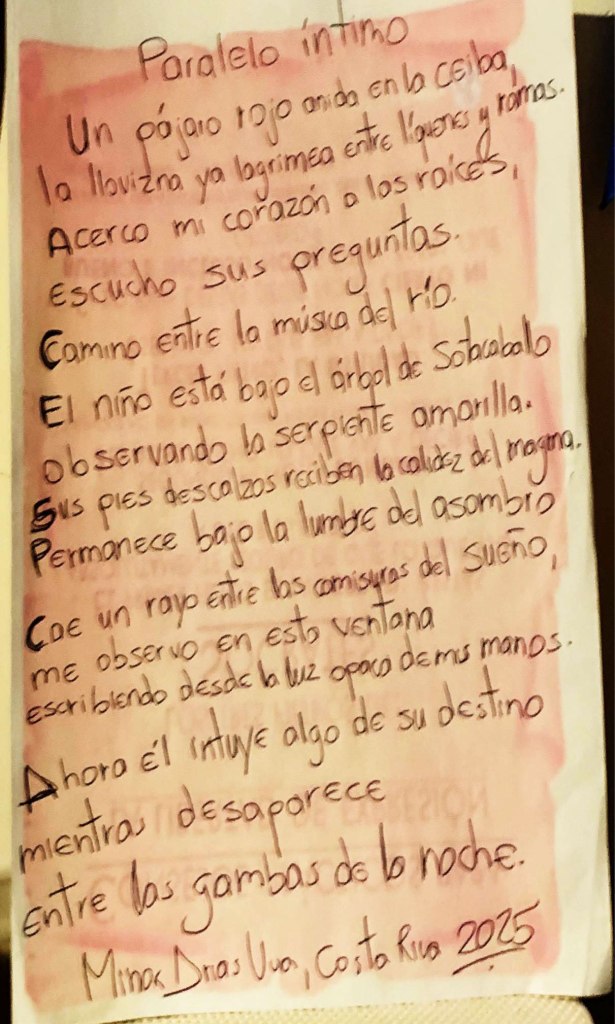 Paralelo íntimo
Un pájaro rojo anida en la ceiba,
la llovizna ya lagrimea entre líquenes y ramas.
Acerco mi corazón a las raíces,
escucho sus preguntas.
Camino entre la música del río.
El niño está bajo el árbol de Sotacaballo
observando la serpiente amarilla.
Sus pies descalzos reciben la calidez del magma.
Permanece bajo la lumbre del asombro
Cae un rayo entre las comisuras del sueño,
me observo en esta ventana
escribiendo desde la luz opaca de mis manos.
Ahora él intuye algo de su destino
mientras desaparece
entre las gambas de la noche.
Minor Arias Uva, Costa Rica 2025